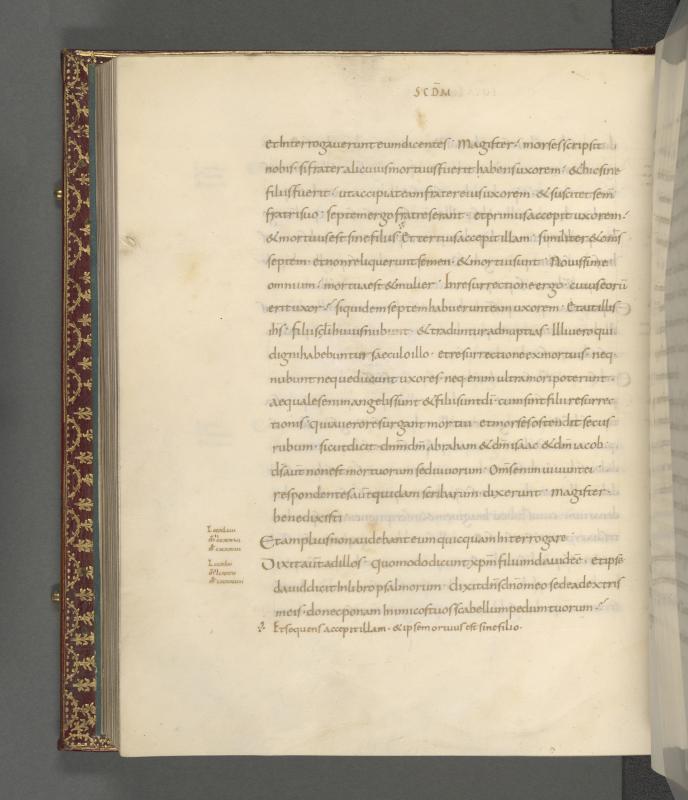 SCDM
et Interrogaverunt eum dicentes · Magister · morses scripsit
nobis · si frater alicuius mortuus fuerit habens uxorem · & hic sine
filiis fuerit · ut accipiat eam frater eius uxorem · & suscitet sem̄
fratri suo · septem ergo fratres erant · et primus accepit uxorem ·
& mortuus est sine filiis · Et tertius accepit illam · similiter & om̄s
septem · et non reliquerunt semen · & mortui sunt · Novissime
omnium · mortua est & mulier · In resurrectione ergo · cuius eorū
erit uxor · siquidem septem habuerunt eam uxorem · Et ait illis
ih̄s · filii s̄cli huius nubunt · & traduntur ad nuptias · Illi vero qui
digni habebuntur saeculo illo · et resurrectione ex mortuis · neq·
nubunt neque ducunt uxores · neq· enim ultra mori poterunt ·
aequales enim angelis sunt & filii sunt dī · cum sint filii resurrec
tionis · quia vero resurgant mortui · et morses ostendit secus
rubum · sicut dicit · dn̄m dm̄ abraham & dm̄ isaac & dm̄ iacob ·
ds̄ aut̄ non est mortuorum sed vivorum · Om̄s enim vivunt ei ·
respondentes aut̄ quidam scribarum dixerunt · magister ·
benedixisti
Et amplius non audebant eum quicquam Interrogare
Dixit aut̄ ad illos · quomodo dicunt xp̄m filium david eē · et ipse
david dicit In libro psalmorum · dixit dn̄s dn̄o meo sede a dextris
meis · donec ponam Inimicos tuos scabellum pedum tuorum ·
Et sequens accepit illam · & ipse mortuus est sine filio ·